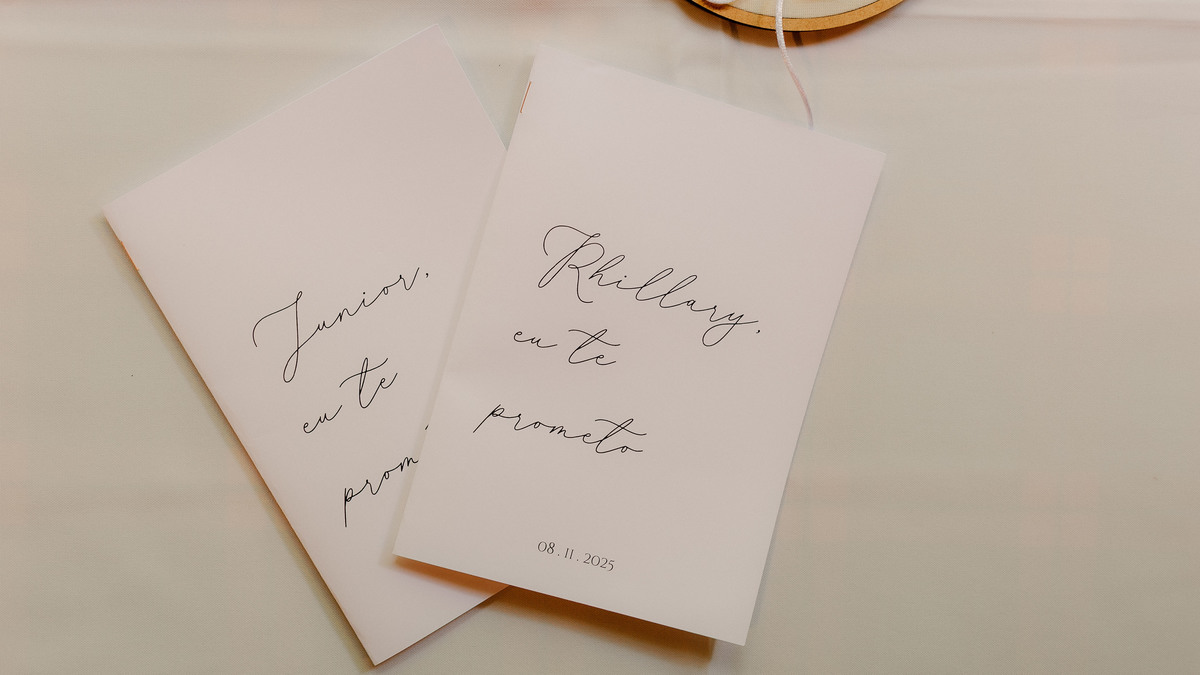 Junior,
eu te
prom
Rhillary,
eu te
prometo
08.11.2025